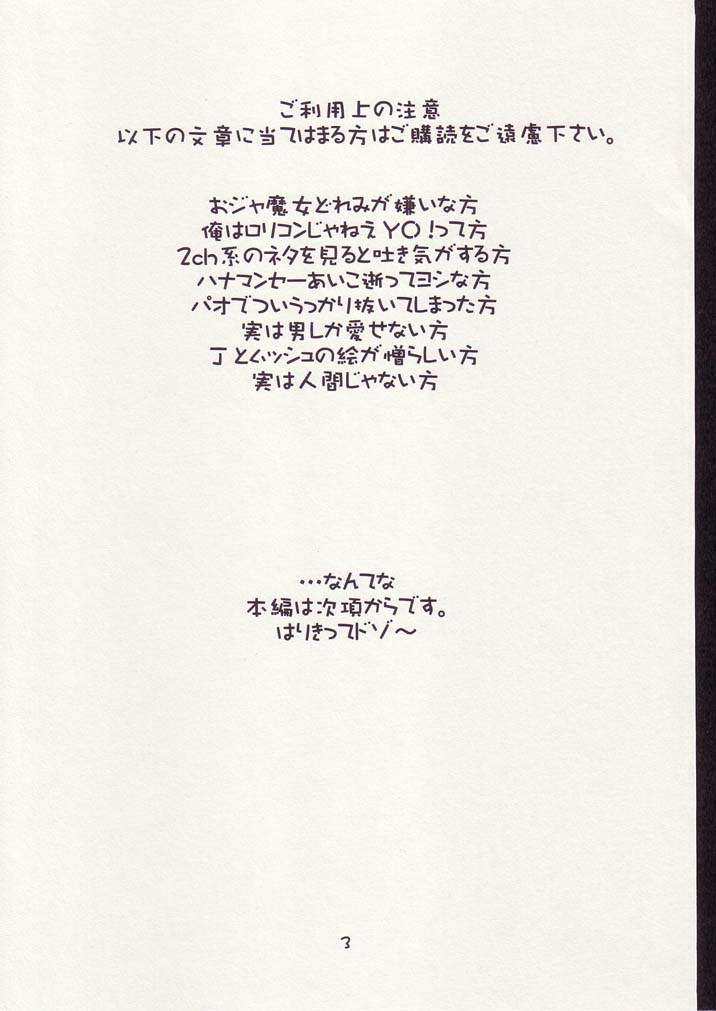 ご利用上の注意
以下の文章に当てはまる方はご購読をご遠慮下さい。
おジャ魔女どれみが嫌いな方
俺はロリコンじゃねえYO!って方
2ch系のネタを見ると吐き気がする方
ハナマンセーあいこ逝ってヨシな方
パオでついうっかり抜いてしまった方
実は男しか愛せない方
丁とムッシュの絵が憎らしい方
実は人間じゃない方
…なんてな
本編は次項からです。
はりきってドゾ〜
3